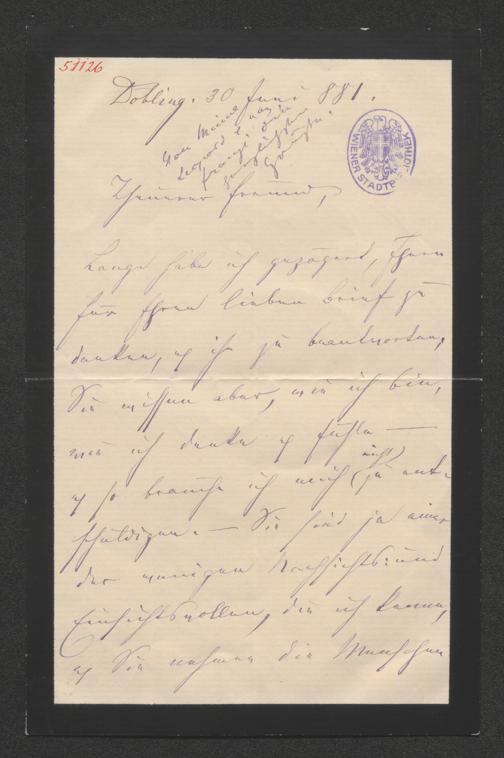 51126
Döbling. 30 Juni 881.
Von Minna
Leopold u. 
Franzi die
herzlichsten
Grüße.
WIENER STADTBIBLIOTHEK
Theurer Freund,
Lange habe ich gezögert, Ihnen
für Ihren lieben Brief zu
danken, u ihn zu beantworten,
Sie wissen aber, wie ich bin,
wie ich denke u fühle —
u so brauche ich mich nicht zu ent-
schuldigen. — Sie sind ja einer
der wenigen Nachsichts: und
Einsichtsvollen, die ich kenne,
u Sie nehmen die Menschen